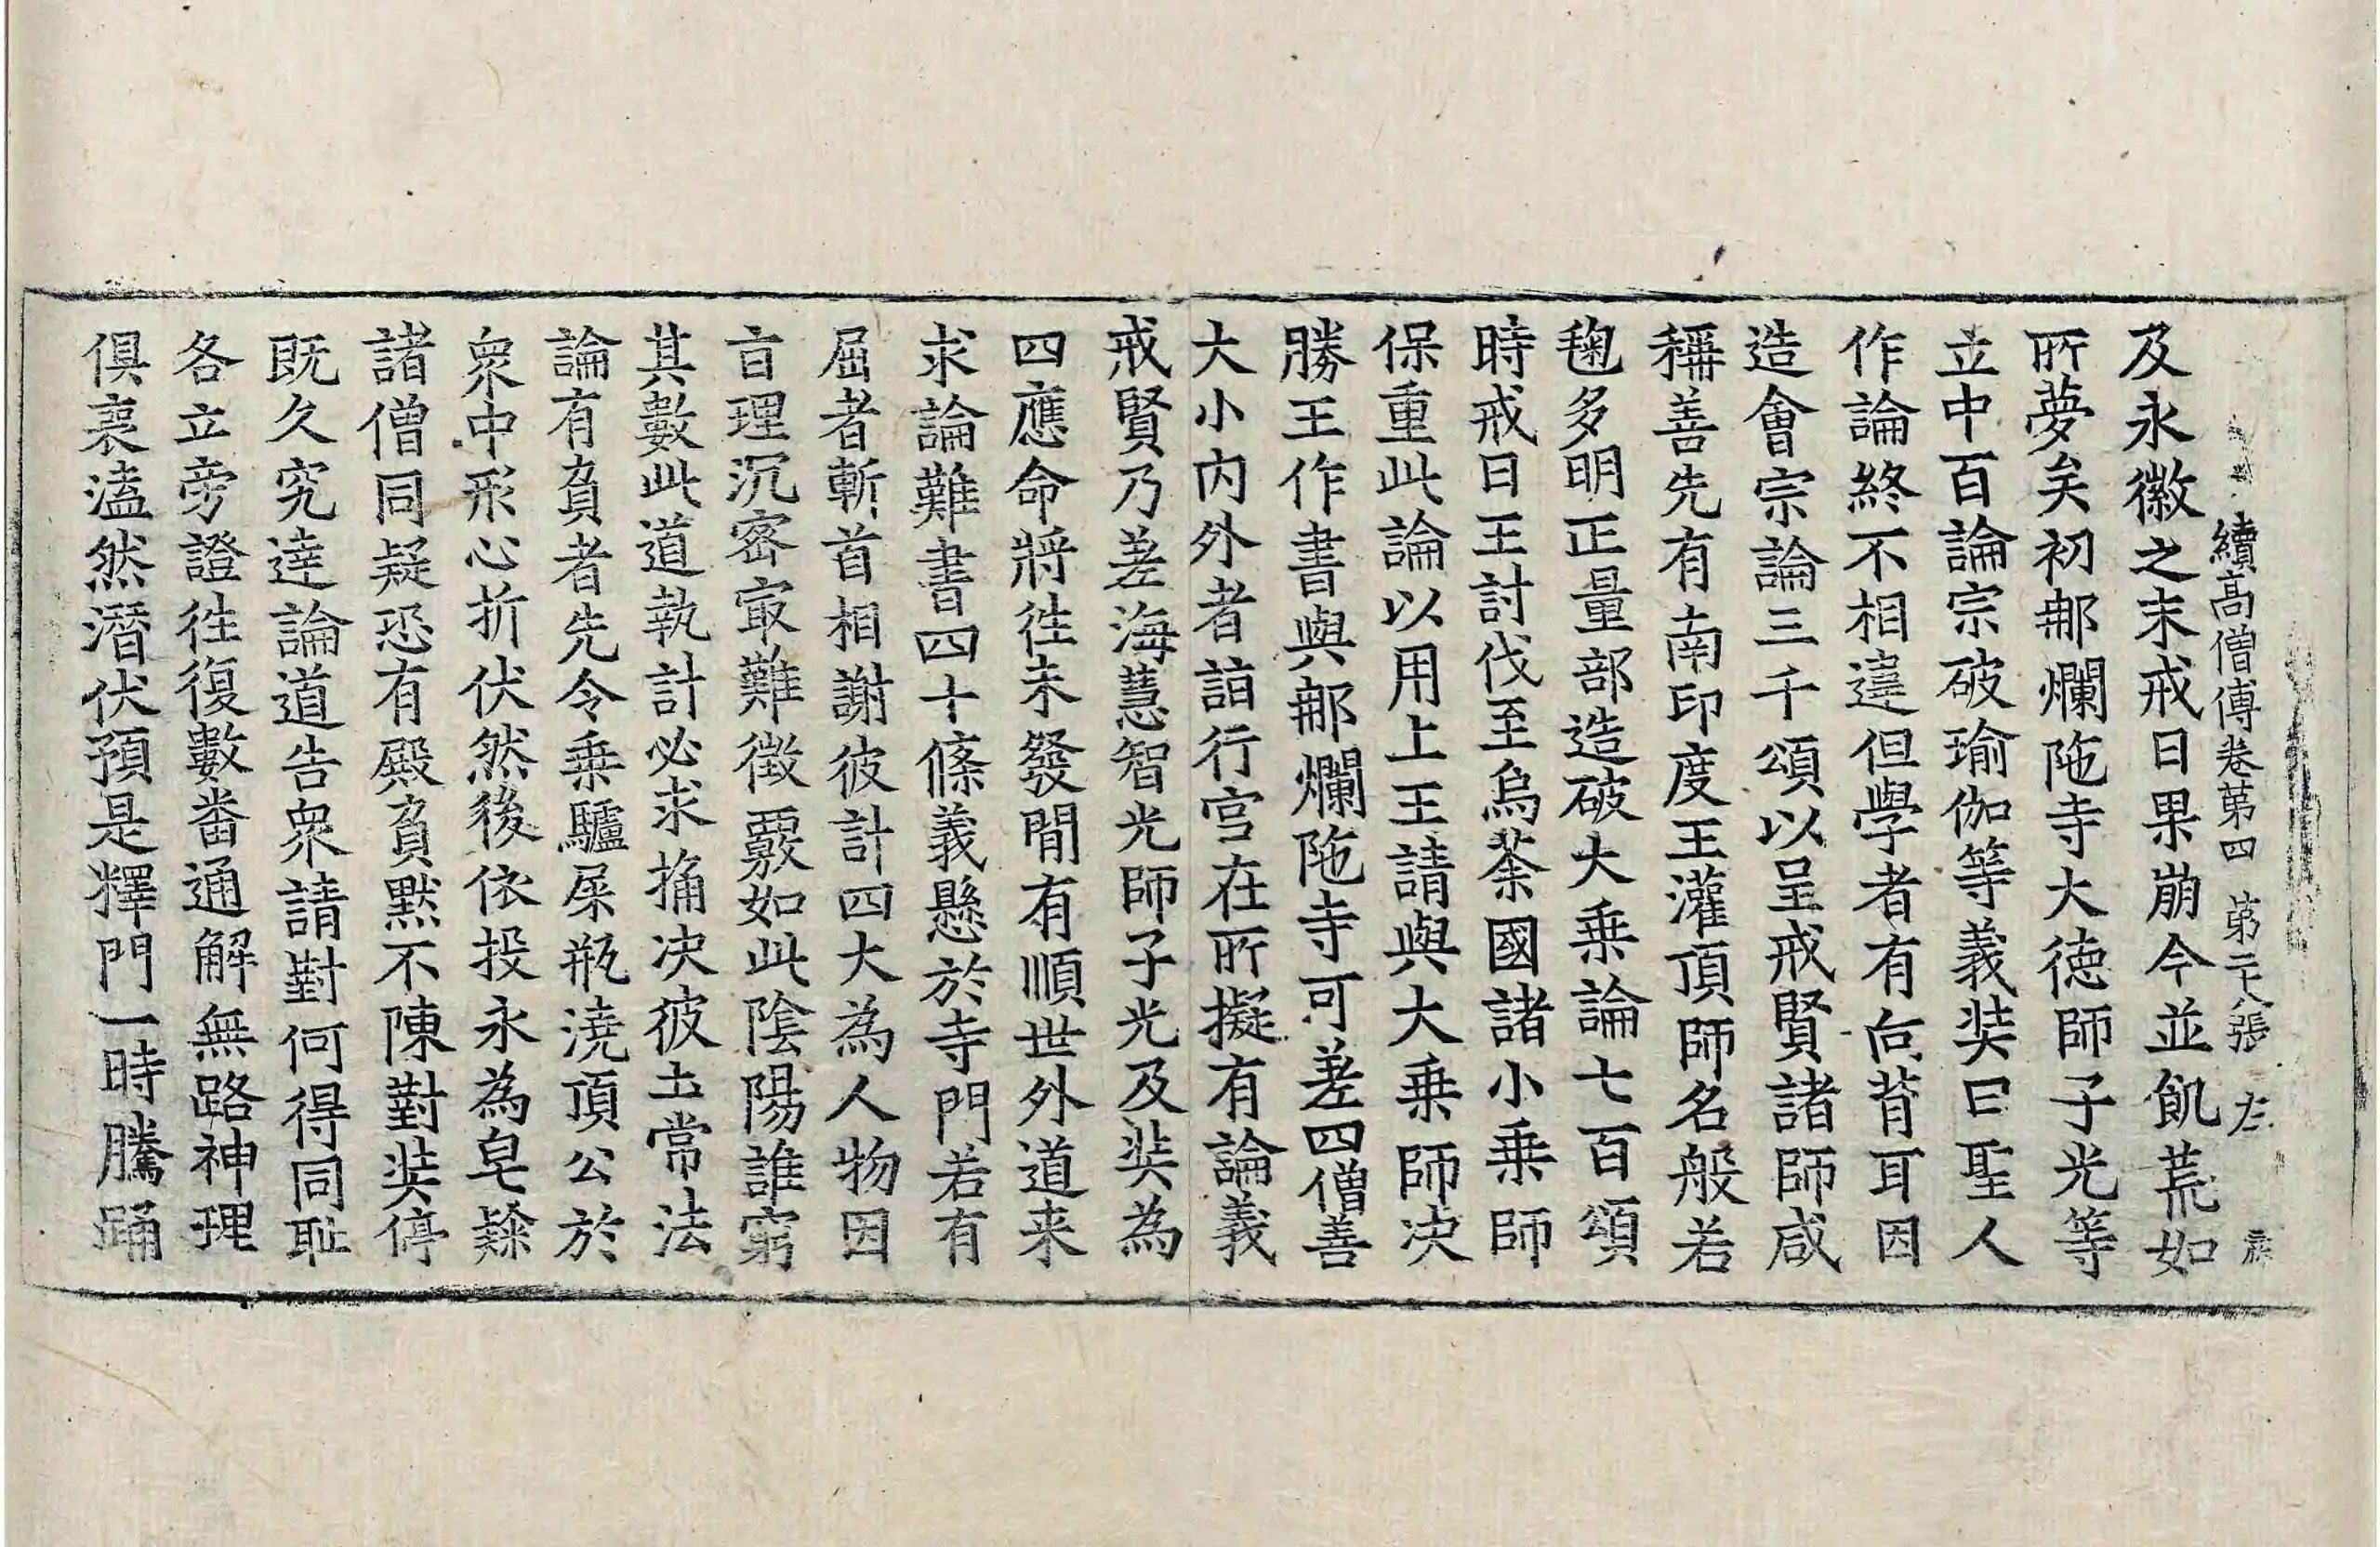 續高僧傳卷第四 第二十八張 左
及永徽之末戒日果崩今並飢荒如
所夢矣初那爛陁寺大德師子光等
立中百論宗破瑜伽等義奘曰聖人
作論終不相違但學者有向背耳因
造會宗論三千頌以呈戒賢諸師咸
稱善先有南印度王灌頂師名般若
毱多明正量部造破大乗論七百頌
時戒日王討伐至烏荼國諸小乗師
保重此論以用上王請與大乗師决
勝王作書與那爛陁寺可差四僧善
大小内外者詣行宫在所擬有論義
戒賢乃差海慧智光師子光及奘為
四應命將徃未發間有順世外道来
求論難書四十條義懸於寺門若有
屈者斬首相謝彼計四大為人物因
旨理沉宻㝡難徵覈如此陰陽誰窮
其數此道執計必求捔决彼土常法
論有負者先令乗驢屎瓶澆頂公於
衆中形心折伏然後依投永為皂𨽻
諸僧同疑恐有毆負默不陳對奘停
既久究達論道告衆請對何得同耻
各立旁證徃復數番通解無路神理
俱喪溘然潛伏預是釋門一時騰踊